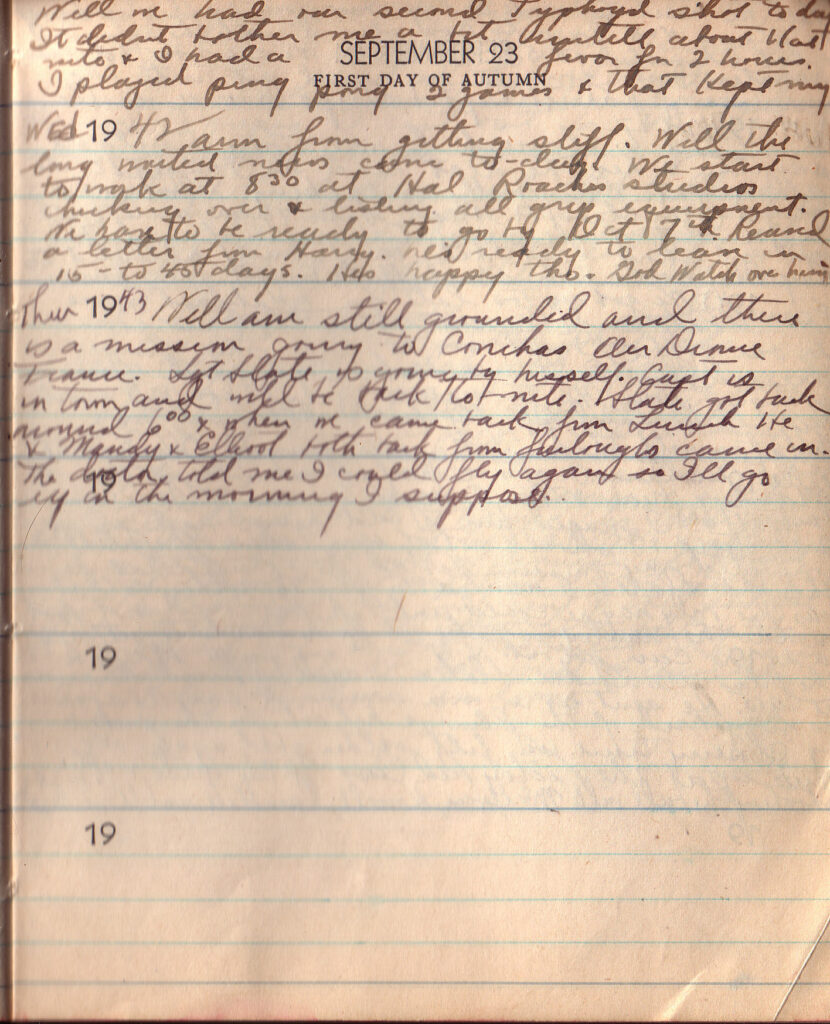 Well we had our second Typhoyd shot to day
It didnt bother me a bit untill about 11 at
nite & I had a fevor for 2 hours.
SEPTEMBER 23
I played ping pong 2 games & that kept my
FIRST DAY OF AUTUMN
Wed 19 42 arm from getting stiff. Well the
long waited news came to-day. We start
to work at 8 30 at Hal Roaches studios
checking over & listing all grip equipment.
We have to be ready to go by Oct 7th. Reseved
a letter from Harry. hes ready to leave in
15 - to 45 days. Hes happy tho. God Watch over him
Thur 19 43 Well am still grounded and there
is a mission going to Conchas Aur Drome
France. Lt Slate is going by hisself. Gast is
in town and will be back to nite. Slate got back
around 6 00 & when we came back from Lunch He
& Mandy & Elliool both back from furloughs came in.
The doctor told me I could fly again so Ill go
19
up in the morning I suppose.
19
19